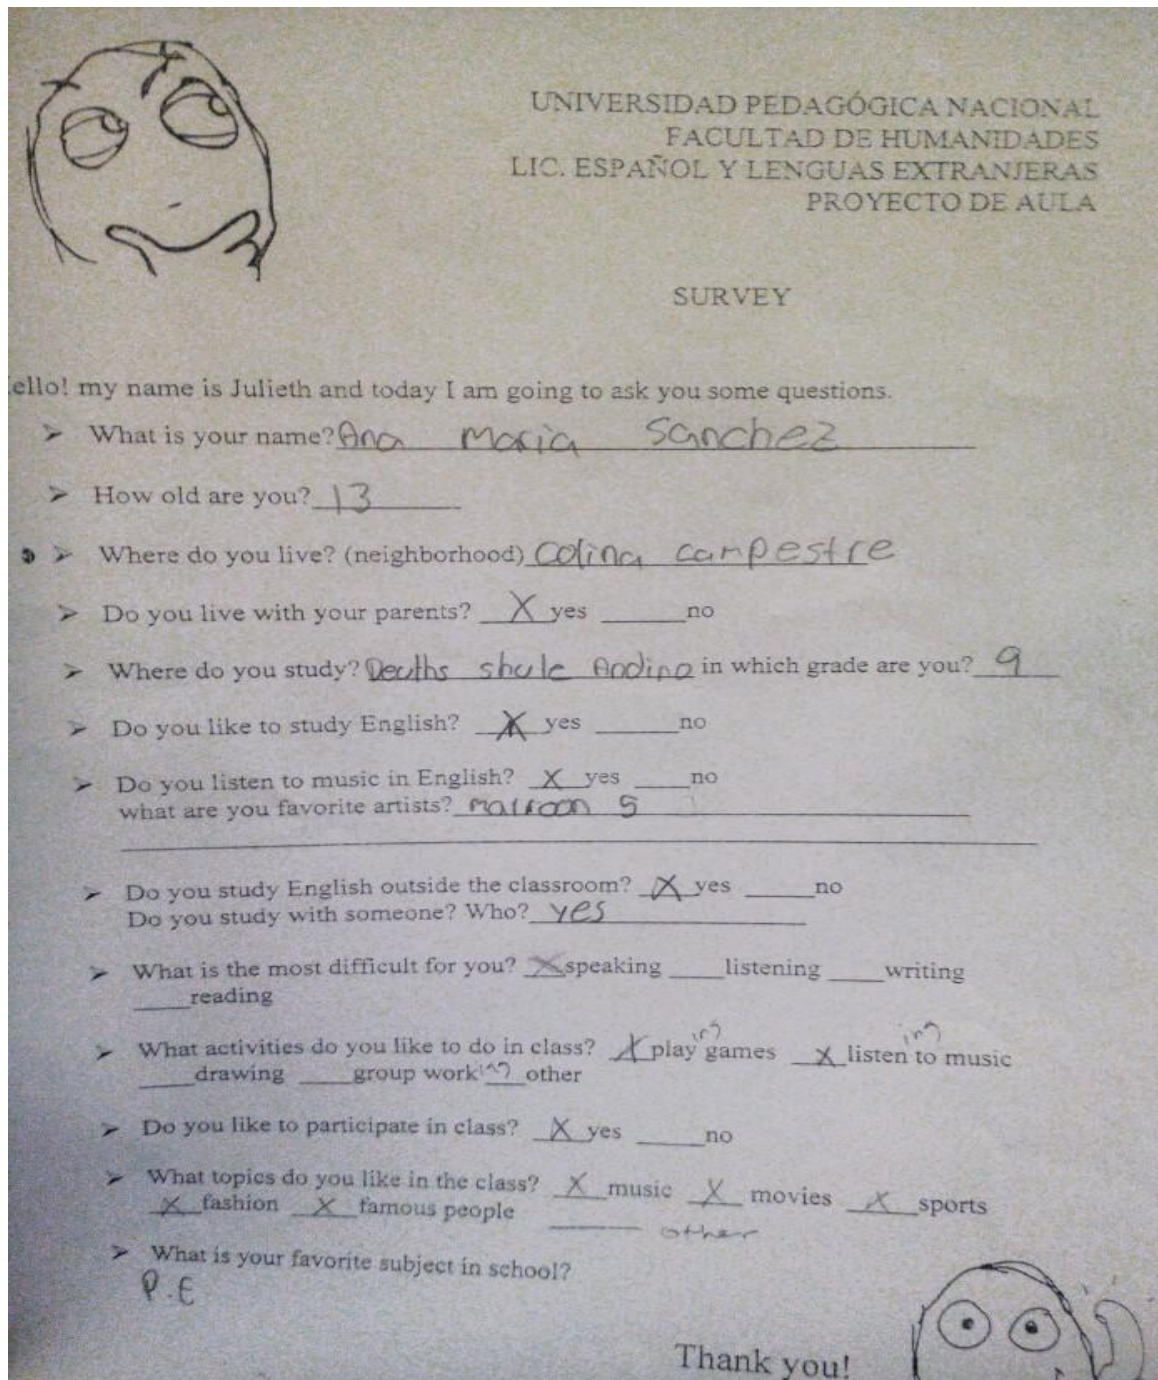 UNIVERSIDAD PEDAGÓGICA NACIONAL
FACULTAD DE HUMANIDADES
LIC. ESPAÑOL Y LENGUAS EXTRANJERAS
PROYECTO DE AULA
SURVEY
ello! my name is Julieth and today I am going to ask you some questions.
➢ What is your name? Ana Maria Sanchez
➢ How old are you? 13
➢ Where do you live? (neighborhood) Colina campestre
➢ Do you live with your parents? X yes ____ no
➢ Where do you study? Deuths shule Andino in which grade are you? 9
➢ Do you like to study English? X yes ____ no
➢ Do you listen to music in English? X yes ____ no
what are you favorite artists? Marroon 5
➢ Do you study English outside the classroom? X yes ____ no
Do you study with someone? Who? yes
➢ What is the most difficult for you? X speaking ____ listening ____ writing
____ reading
➢ What activities do you like to do in class? X playing games X listening to music
____ drawing ____ group working ____ other
➢ Do you like to participate in class? X yes ____ no
➢ What topics do you like in the class? X music X movies X sports
X fashion X famous people ____ other
➢ What is your favorite subject in school?
P.E
Thank you!